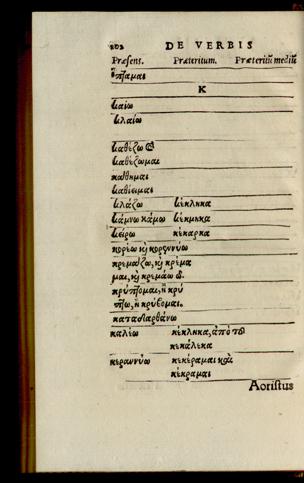 202 DE VERBIS
Præsens. Præteritum. Præteritū mediū
ἵπταμαι
K
καίω
κλαίω
καθέζω
καθέζομαι
κάθημαι
καθίεμαι
κλάζω κέκληκα
κάμνω κάμω κέκμηκα
κείρω κέκαρκα
κορέω κỳ κορεννύω
κρεμάζω, κỳ κρέμα
μαι, κỳ κρεμάω
κρύπτομαι, ἢ κρύ
πτω, ἢ κρύβομαι.
καταδαρθάνω
καλέω κέκληκα, ἀπὸ τοῦ
κεκάλεκα
κεραννύω κεκέραμαι καὶ
κέκραμαι
Aoristus